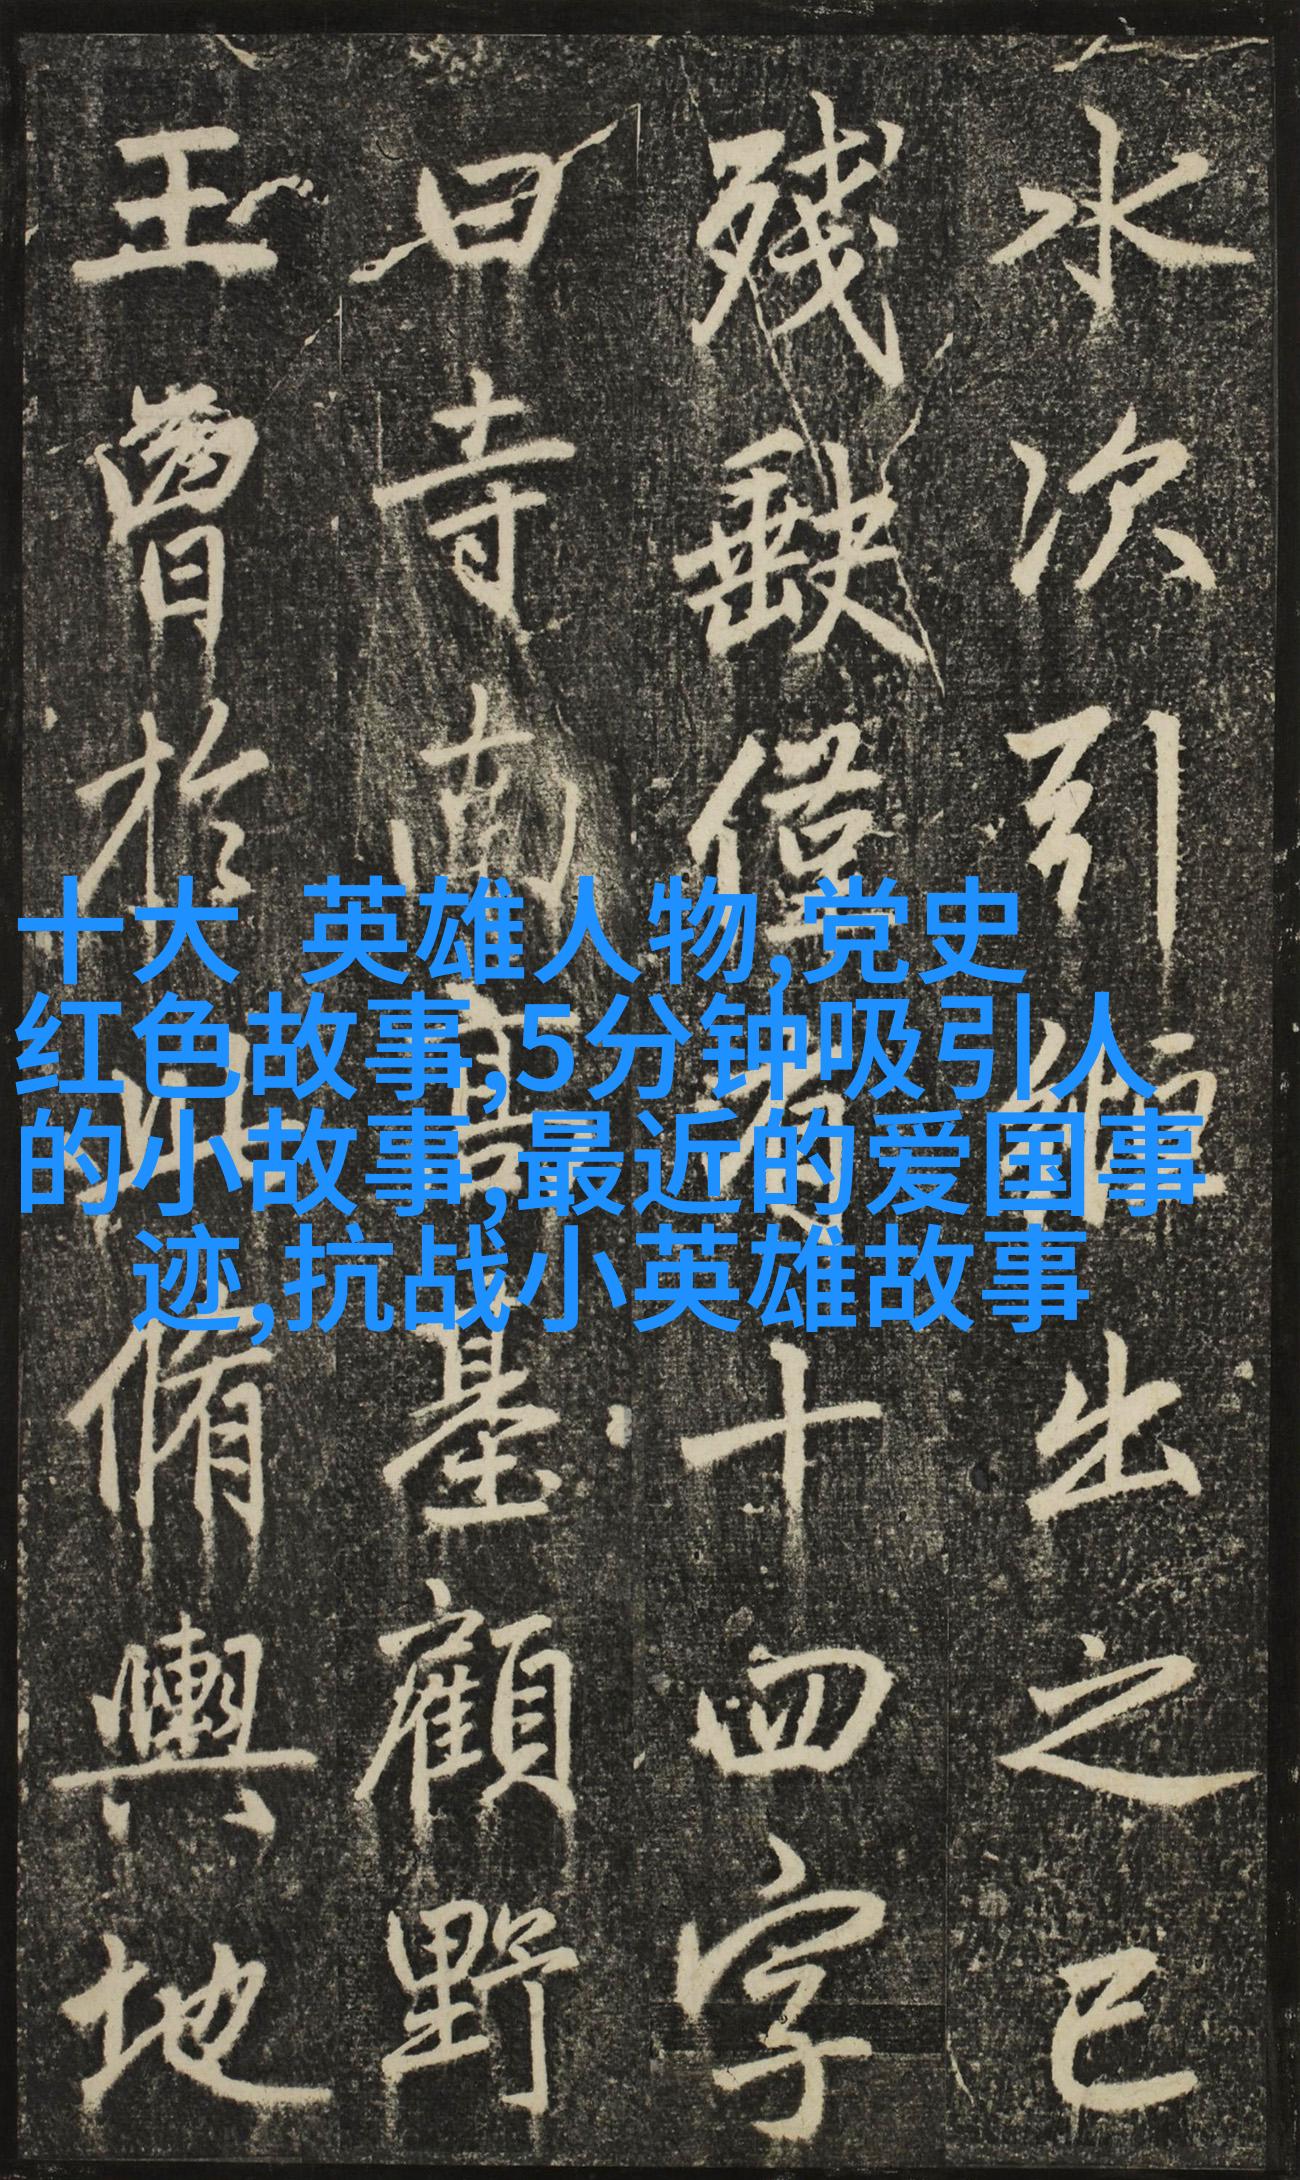 水次引縆出之已
殘缺僅十四字
曰寺南高基顧野
王曾於此脩輿地
十大 英雄人物,党史
红色故事,5分钟吸引人
的小故事,最近的爱国事
迹,抗战小英雄故事